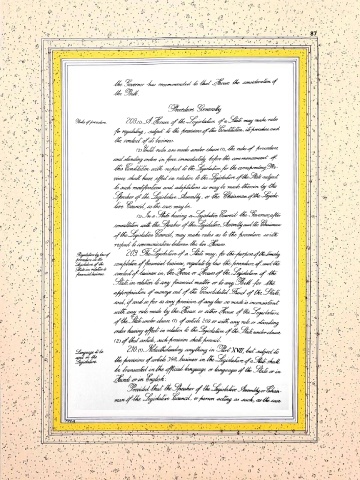 87
the Governor has recommended to that House the consideration of
the Bill.
Procedure Generally
Rules of procedure.
208. (1) A House of the Legislature of a State may make rules
for regulating, subject to the provisions of this Constitution, its procedure and
the conduct of its business.
(2) Until rules are made under clause (1), the rules of procedure
and standing orders in force immediately before the commencement of
this Constitution with respect to the Legislature for the corresponding Pro-
vince shall have effect in relation to the Legislature of the State subject
to such modifications and adaptations as may be made therein by the
Speaker of the Legislative Assembly, or the Chairman of the Legisla-
tive Council, as the case may be.
(3) In a State having a Legislative Council the Governor, after
consultation with the Speaker of the Legislative Assembly and the Chairman
of the Legislative Council, may make rules as to the procedure with
respect to communications between the two Houses.
Regulation by law of
procedure in the
Legislature of the
State in relation to
financial business.
209. The Legislature of a State may, for the purpose of the timely
completion of financial business, regulate by law the procedure of, and the
conduct of business in, the House or Houses of the Legislature of the
State in relation to any financial matter or to any Bill for the
appropriation of moneys out of the Consolidated Fund of the State,
and, if and so far as any provision of any law so made is inconsistent
with any rule made by the House or either House of the Legislature
of the State under clause (1) of article 208 or with any rule or standing
order having effect in relation to the Legislature of the State under clause
(2) of that article, such provision shall prevail.
Language to be
used in the
Legislature.
210. (1) Notwithstanding anything in Part XVII, but subject to
the provisions of article 348, business in the Legislature of a State shall
be transacted in the official language or languages of the State or in
Hindi or in English:
Provided that the Speaker of the Legislative Assembly or Chair-
man of the Legislative Council, or person acting as such, as the case